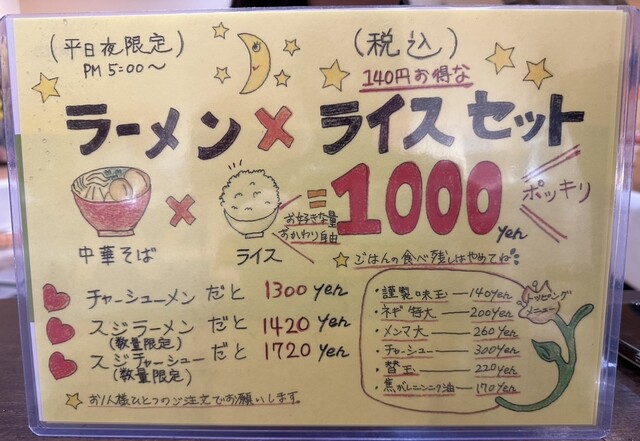 (平日夜限定)
PM 5:00〜
(税込)
140円お得な
ラーメン×ライスセット
中華そば
×
ライス
お好きな量
おかわり自由
=1000yen
ポッキリ
☆ごはんの食べ残しはやめてね
チャーシューメンだと 1300 yen
スジラーメンだと 1420 yen
(数量限定)
スジチャーシューだと 1720 yen
(数量限定)
☆お1人様ひとつのご注文でお願いします。
トッピング
メニュー
・謹製味玉—140yen
・ネギ特大—200yen
・メンマ大—260yen
・チャーシュー—300yen
・替玉—220yen
・焦がしニンニク油—170yen